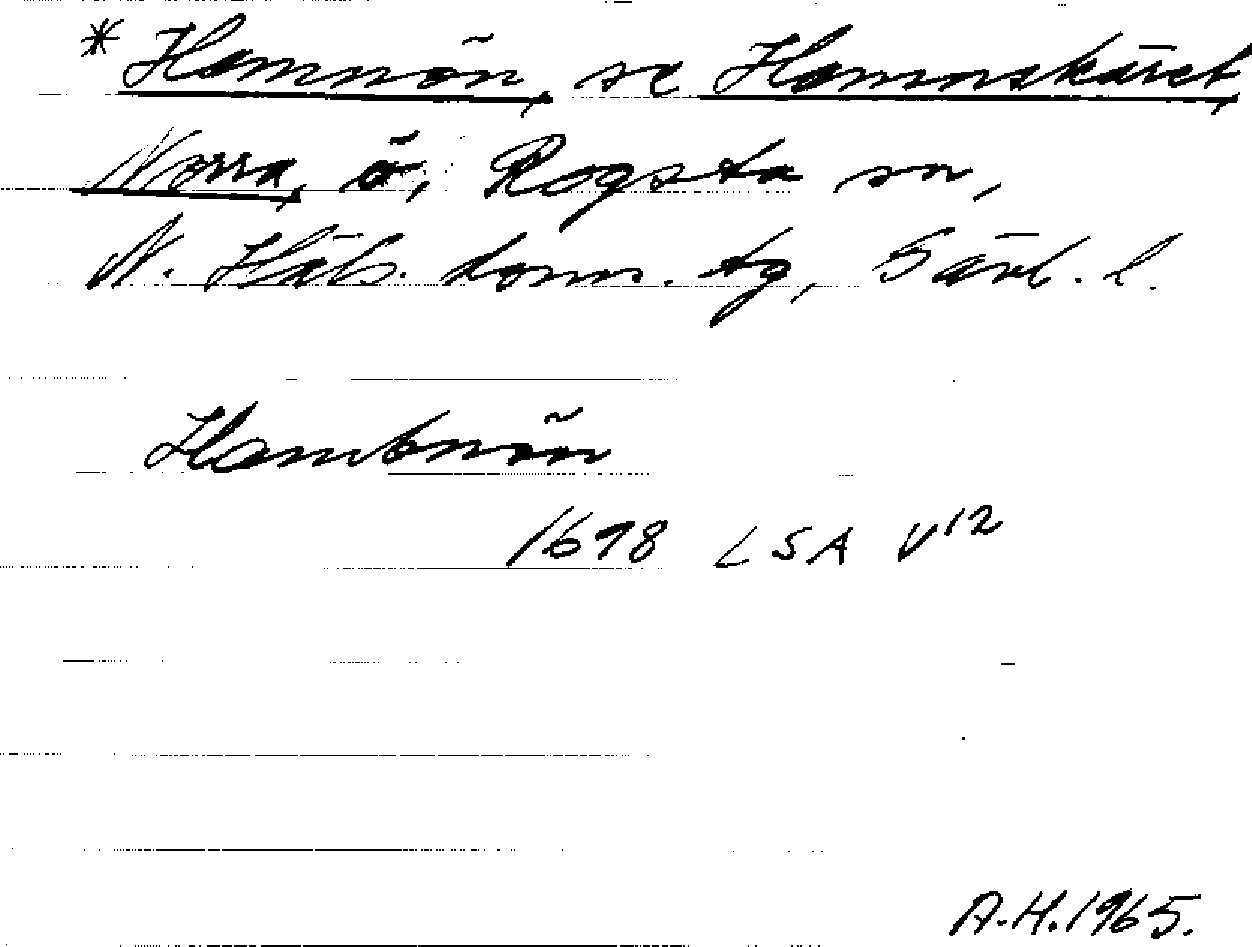 * Hamnön, se Hamnskäret,
Norra, ö, Rogsta sn,
N. Häls. doms. tg, Gävl. l.
Hambnön
1698 LSA V12
A.H.1965.